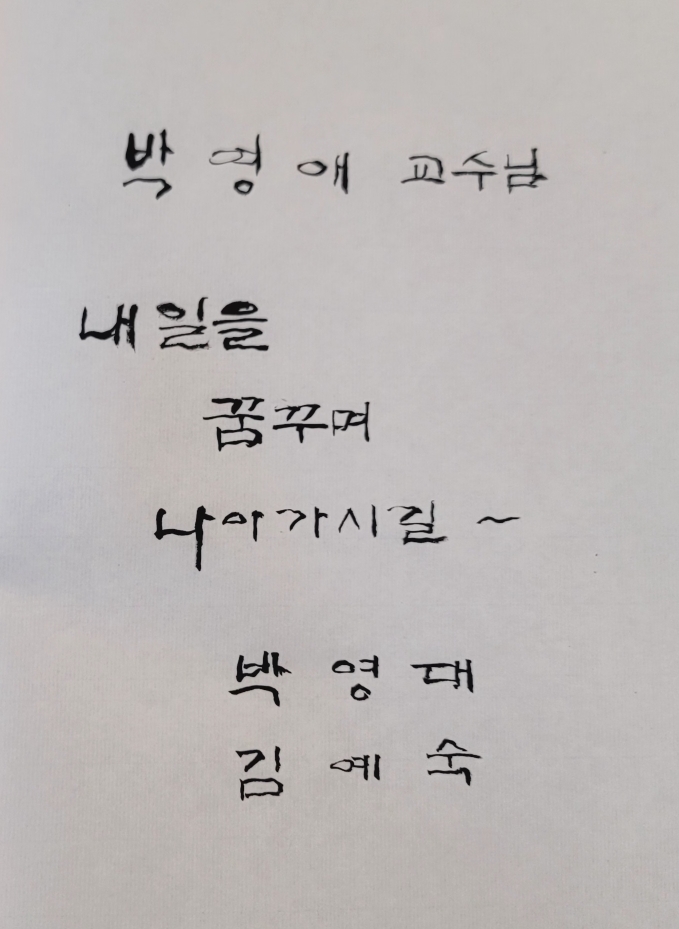 박형애 교수님
내일을
꿈꾸며
나아가시길 ~
박영대
김예숙